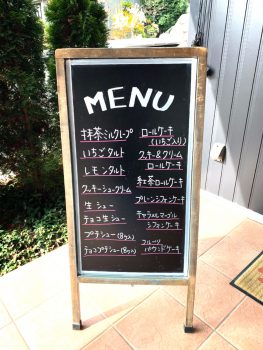 MENU
抹茶ミルクレープ
いちごタルト
レモンタルト
クッキーシュークリーム
生シュー
チョコ生シュー
プチシュー(8ヶ入)
チョコプチシュー(8ヶ入)
ロールケーキ
(いちご入り)
クッキー&クリーム
ロールケーキ
紅茶ロールケーキ
プレーンシフォンケーキ
キャラメルマーブル
シフォンケーキ
フルーツ
パウンドケーキ